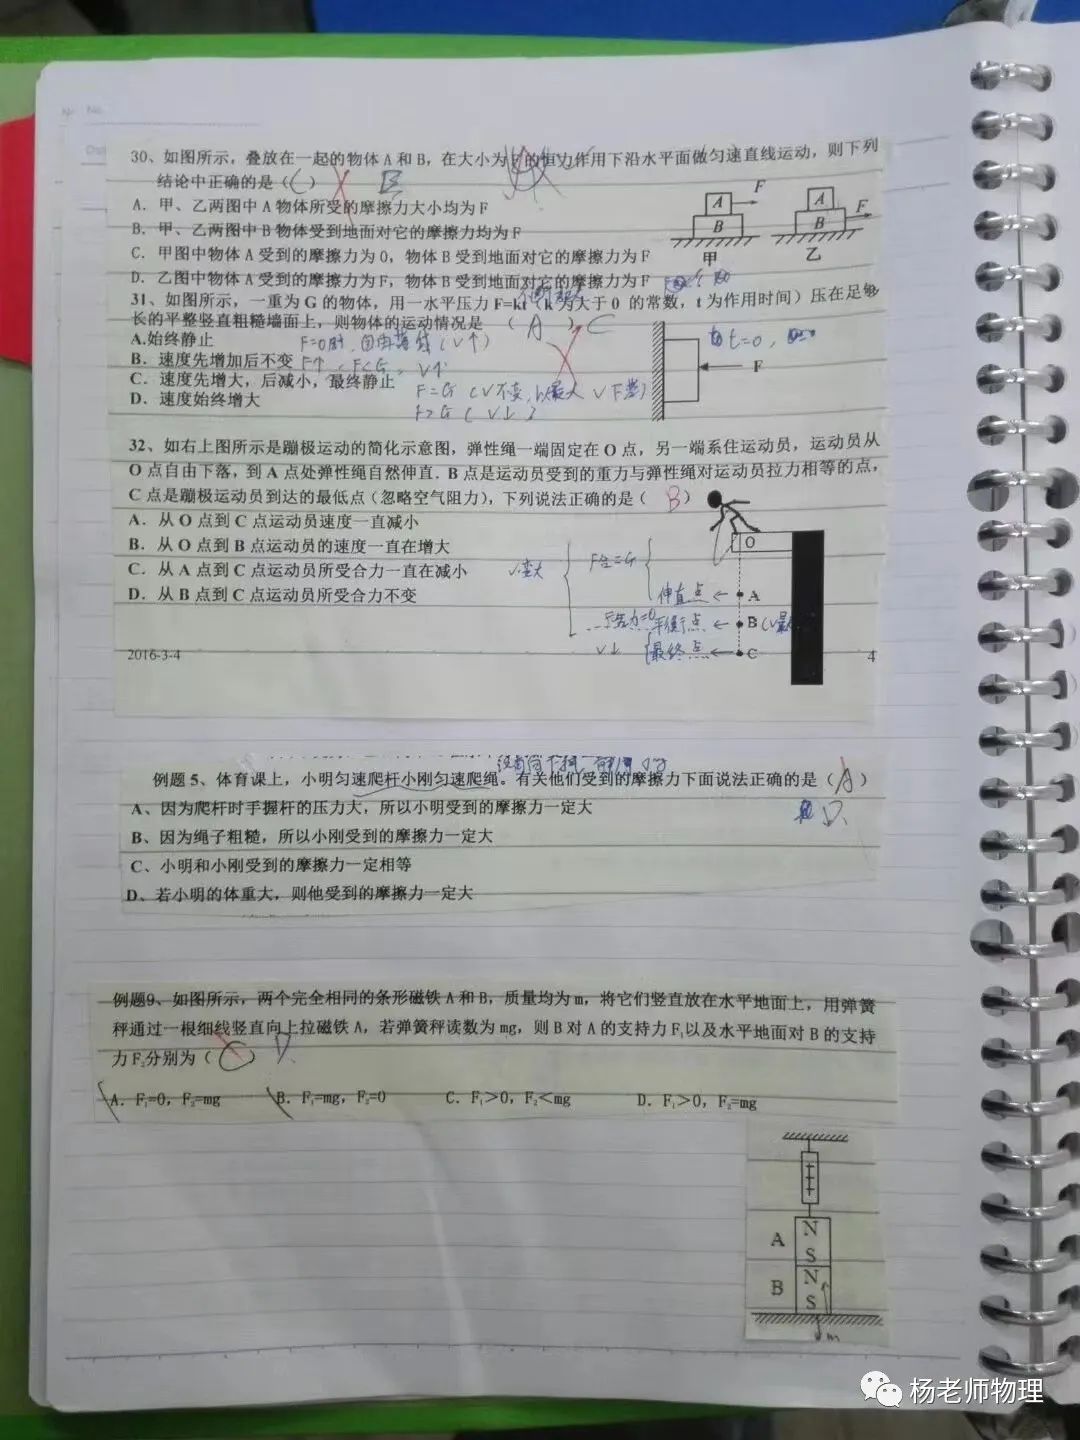 30、如图所示，叠放在一起的物体 A 和 B，在大小为 F 的恒力作用下沿水平面做匀速直线运动，则下列
结论中正确的是（C） B
A．甲、乙两图中 A 物体所受的摩擦力大小均为 F
B．甲、乙两图中 B 物体受到地面对它的摩擦力均为 F
C．甲图中物体 A 受到的摩擦力为 0，物体 B 受到地面对它的摩擦力为 F
D．乙图中物体 A 受到的摩擦力为 F，物体 B 受到地面对它的摩擦力为 F
A F
B
甲
A
B F
乙
31、如图所示，一重为 G 的物体，用一水平压力 F=kt（k 为大于 0 的常数，t 为作用时间）压在足够
长的平整竖直粗糙墙面上，则物体的运动情况是 （ A ） C
A.始终静止
B．速度先增加后不变 F↑，F<G，V↑
C．速度先增大，后减小，最终静止
D．速度始终增大
F=G（V不变，
F>G（V↓）
t=0，
F
32、如右上图所示是蹦极运动的简化示意图，弹性绳一端固定在 O 点，另一端系住运动员，运动员从
O 点自由下落，到 A 点处弹性绳自然伸直．B 点是运动员受到的重力与弹性绳对运动员拉力相等的点，
C 点是蹦极运动员到达的最低点（忽略空气阻力），下列说法正确的是（ B ）
A．从 O 点到 C 点运动员速度一直减小
B．从 O 点到 B 点运动员的速度一直在增大
C．从 A 点到 C 点运动员所受合力一直在减小
D．从 B 点到 C 点运动员所受合力不变
O
V变大 F合=G
伸直点 ← A
平衡点 ← B
V↓ 最终点 ← C
2016-3-4
4
例题 5、体育课上，小明匀速爬杆小刚匀速爬绳。有关他们受到的摩擦力下面说法正确的是（A）
D
A、因为爬杆时手握杆的压力大，所以小明受到的摩擦力一定大
B、因为绳子粗糙，所以小刚受到的摩擦力一定大
C、小明和小刚受到的摩擦力一定相等
D、若小明的体重大，则他受到的摩擦力一定大
例题9、如图所示，两个完全相同的条形磁铁 A 和 B，质量均为 m，将它们竖直放在水平地面上，用弹簧
秤通过一根细线竖直向上拉磁铁 A，若弹簧秤读数为 mg，则 B 对 A 的支持力 F₁以及水平地面对 B 的支持
力 F₂分别为（ C ） D
A．F₁=0，F₂=mg B．F₁=mg，F₂=0 C．F₁＞0，F₂＜mg D．F₁＞0，F₂=mg
A N
S
B N
S
m
杨老师物理